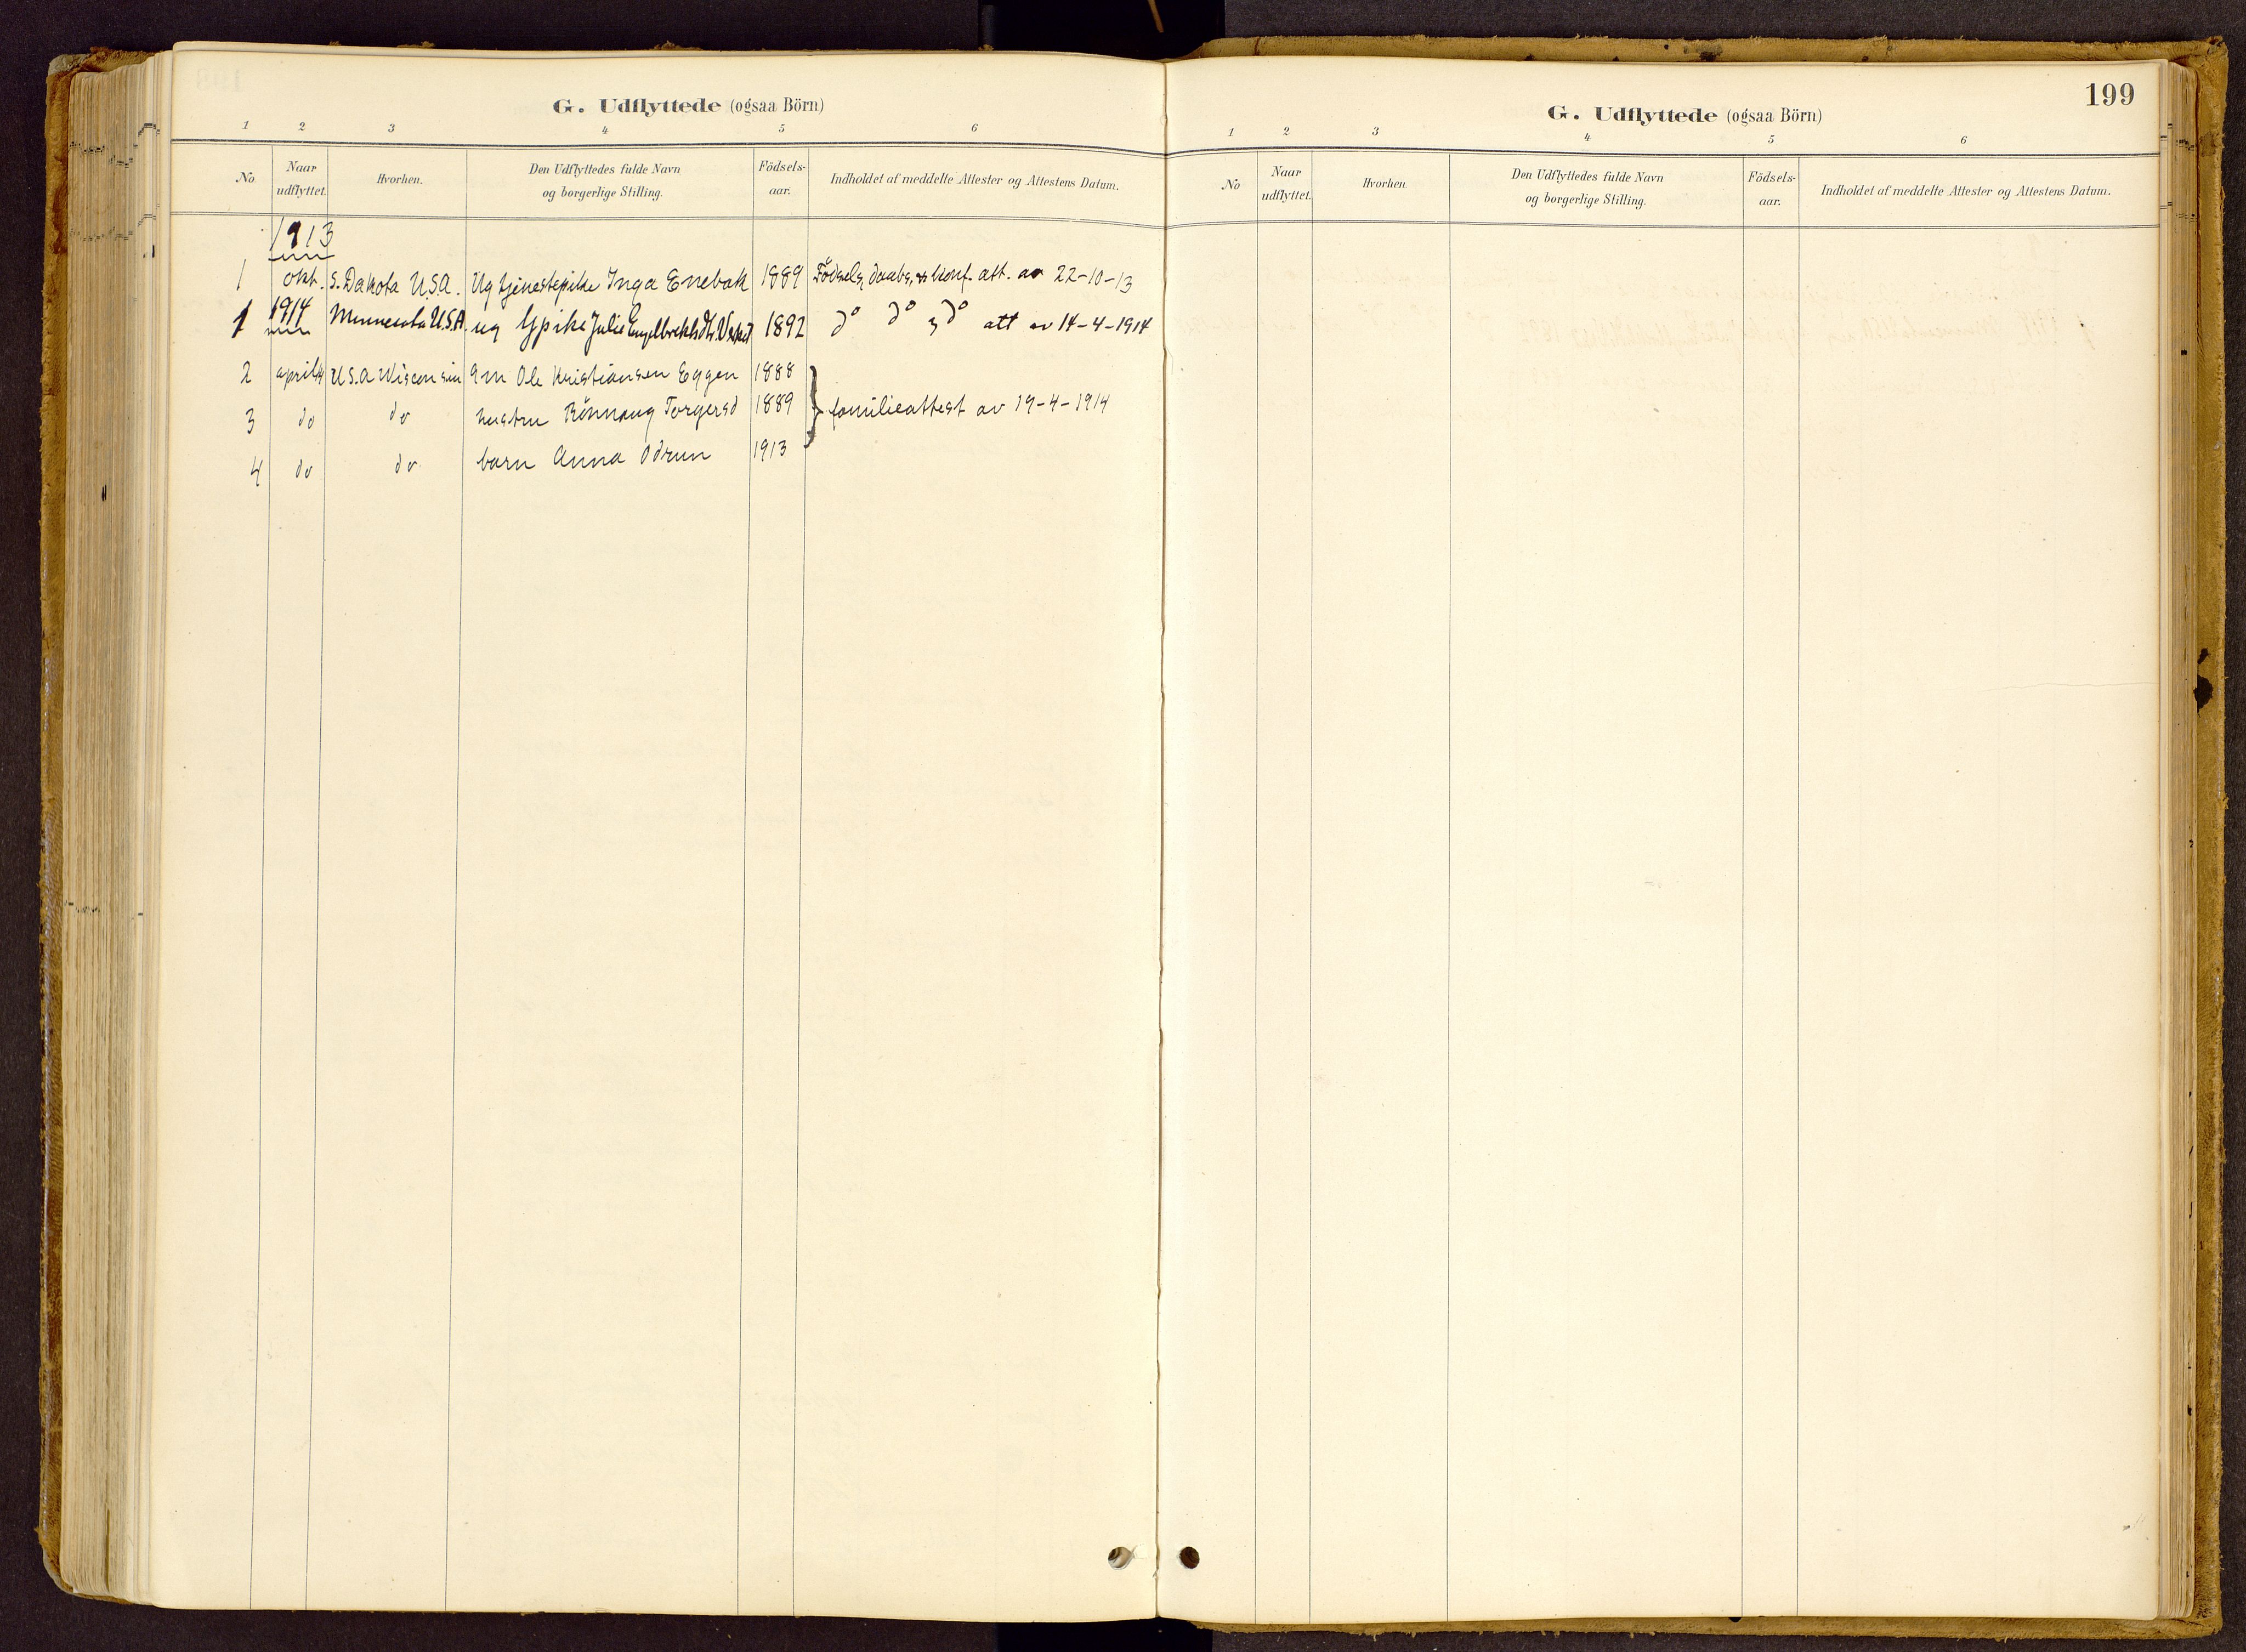 G. Udflyttede (ogsaa Börn)
1 2 3 4 5 6
No Naar udflyttet. Hvorhen. Den Udflyttedes fulde Navn og borgerlige Stilling. Födsels-aar. Indholdet af meddelte Attester og Attestens Datum.
1913
1 okt. S. Dakota U.S.A. Ug tjenestepike Inga Enebak 1889 Födsels, daabs, & konf. att. av 22-10-13
1 1914 Minnesota U.S.A. ug Julie 1892 do do do att av 14-4-1914
2 april U.S.A Wisconsin gm Ole Kristiansen Eggen 1888
3 do do hustru Rönnaug Torgersd 1889 familieattest av 19-4-1914
4 do do barn Anna Odrun 1913
199
G. Udflyttede (ogsaa Börn)
1 2 3 4 5 6
No Naar udflyttet. Hvorhen. Den Udflyttedes fulde Navn og borgerlige Stilling. Födsels-aar. Indholdet af meddelte Attester og Attestens Datum.